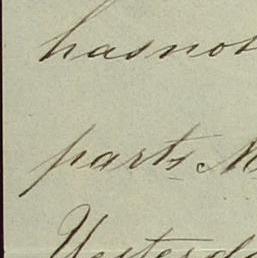 has not
parts
Yesterda